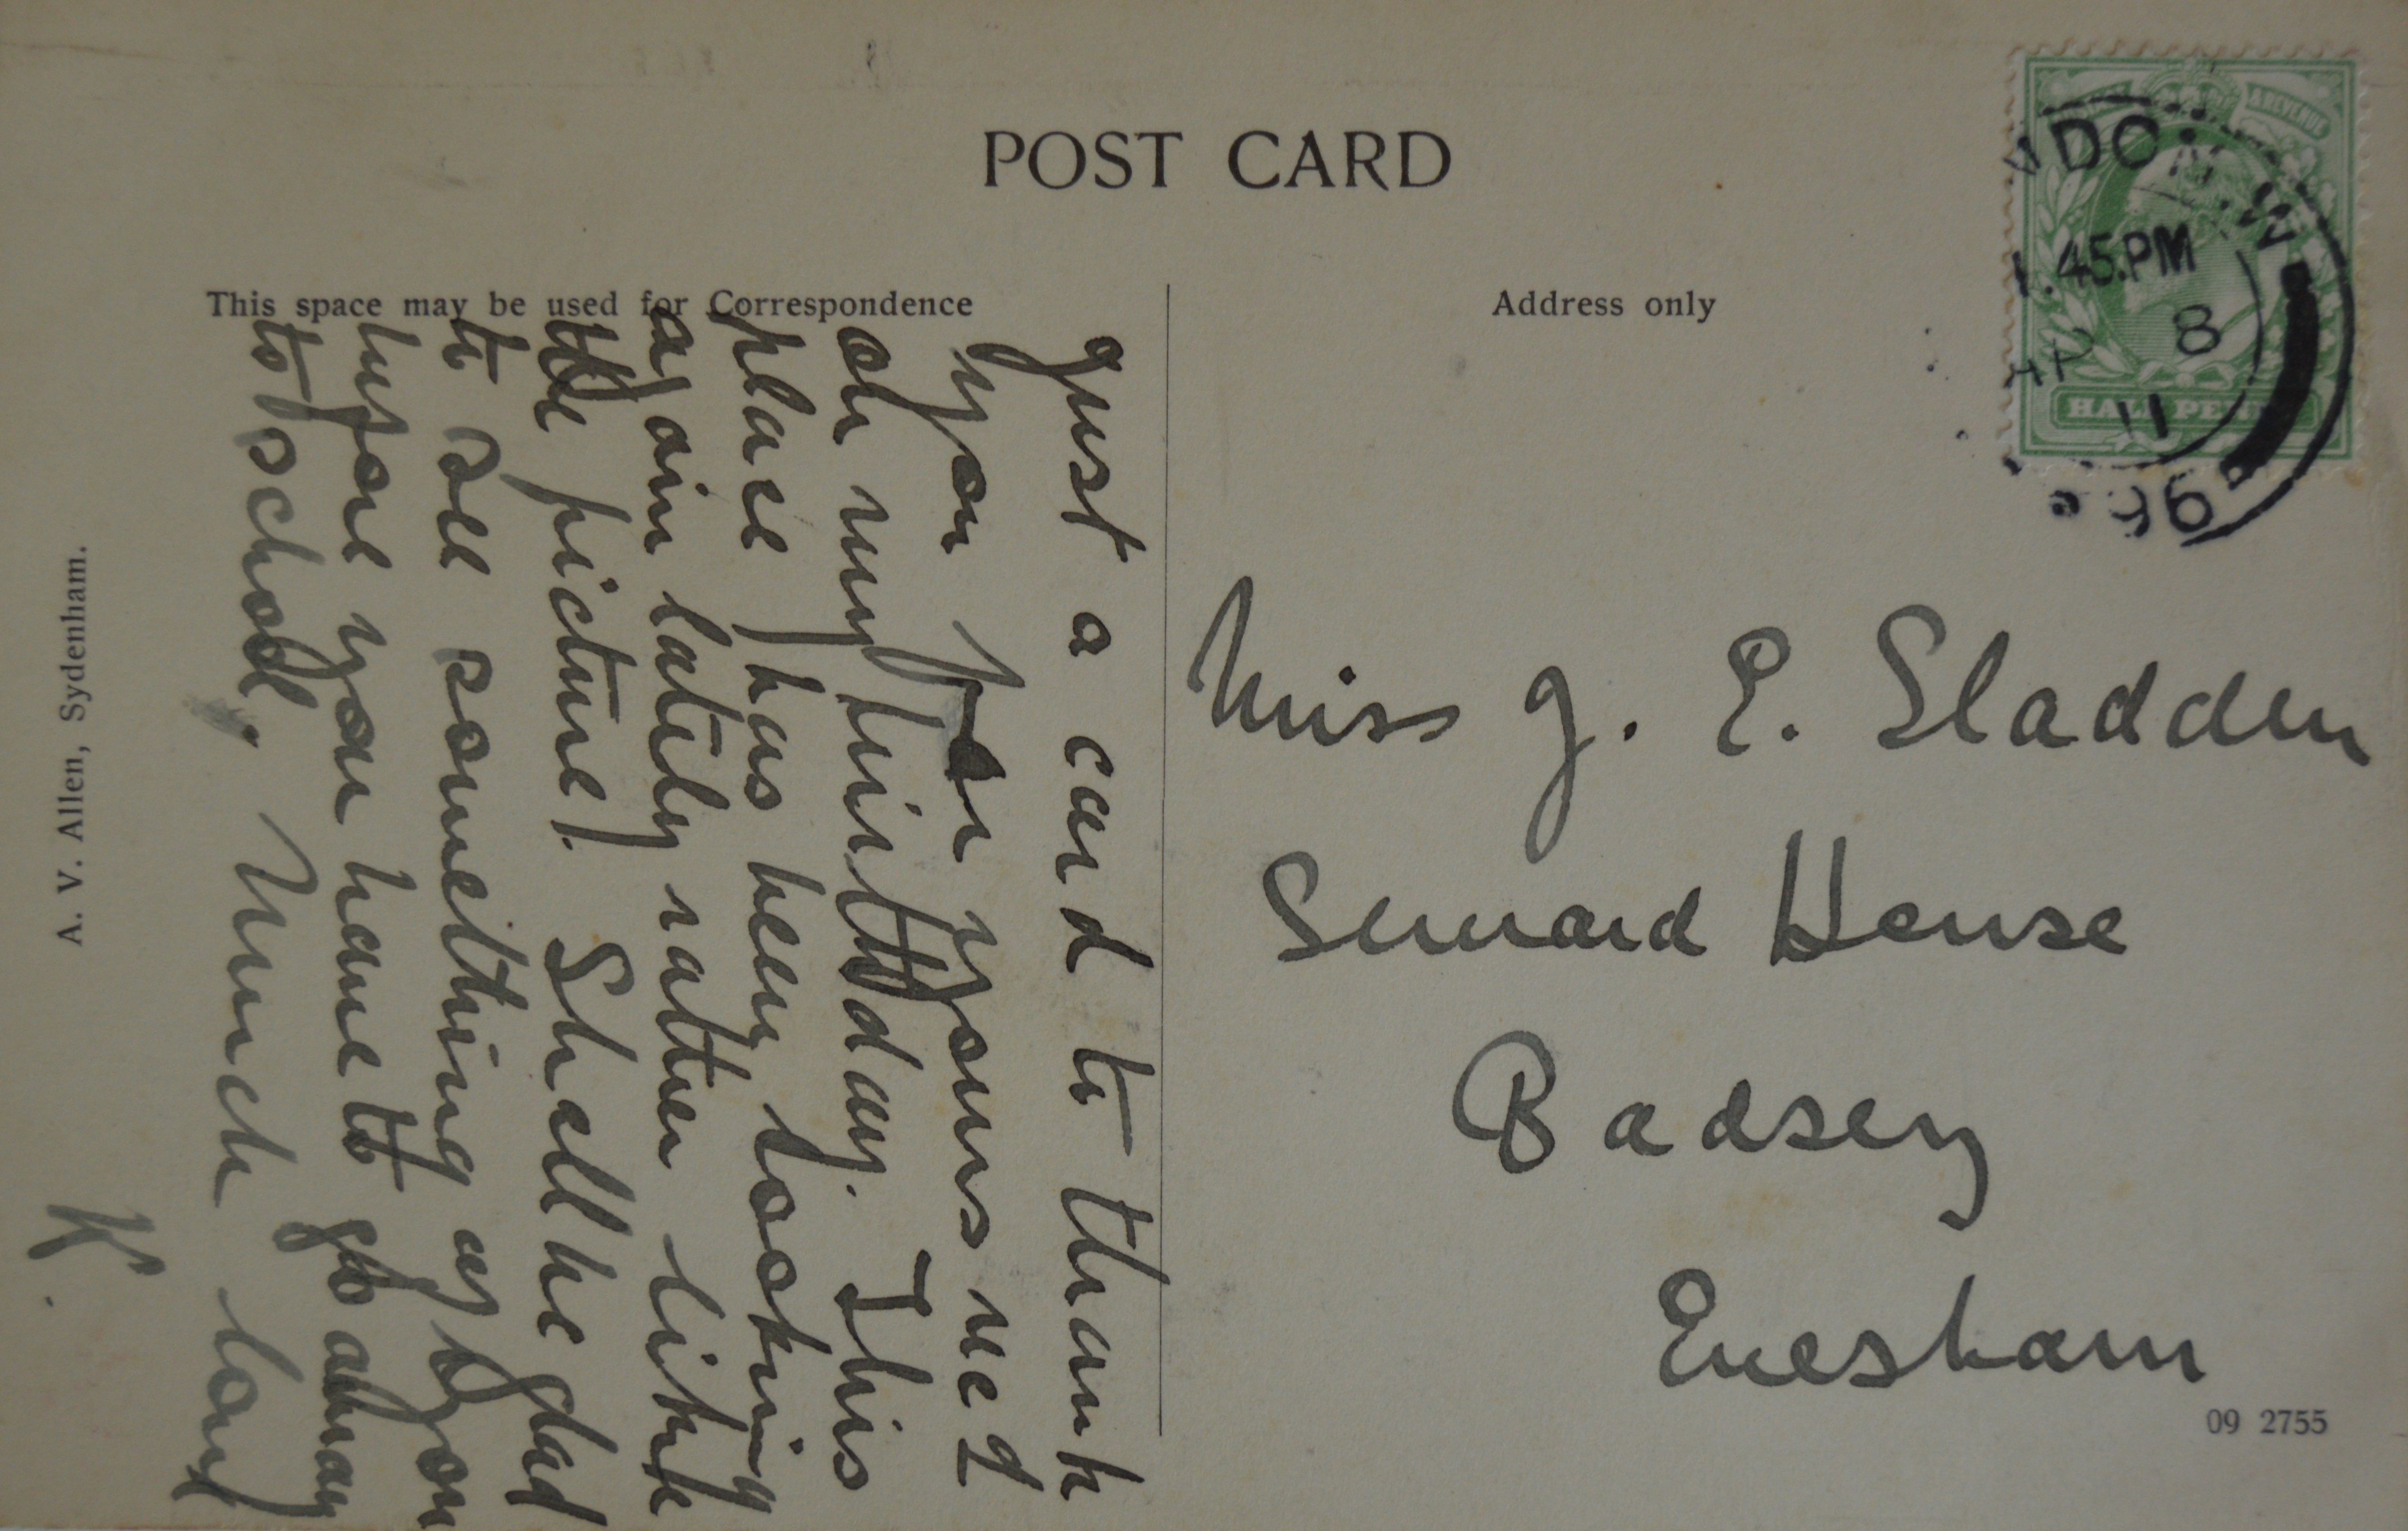 POST CARD
This space may be used for Correspondence
Address only
A. V. Allen, Sydenham.
Just a card to thank
you for yours rec d
on my birthday. This
place has been looking
again lately rather like
the picture! Shall be glad
to see something of you
before you have to go away
to school. Much love
K.
Miss J. E. Sladden
Seward House
Badsey
Evesham
09 2755
NDO
W
.45.PM
AP 8
11
HALF PENNY
& REVENUE